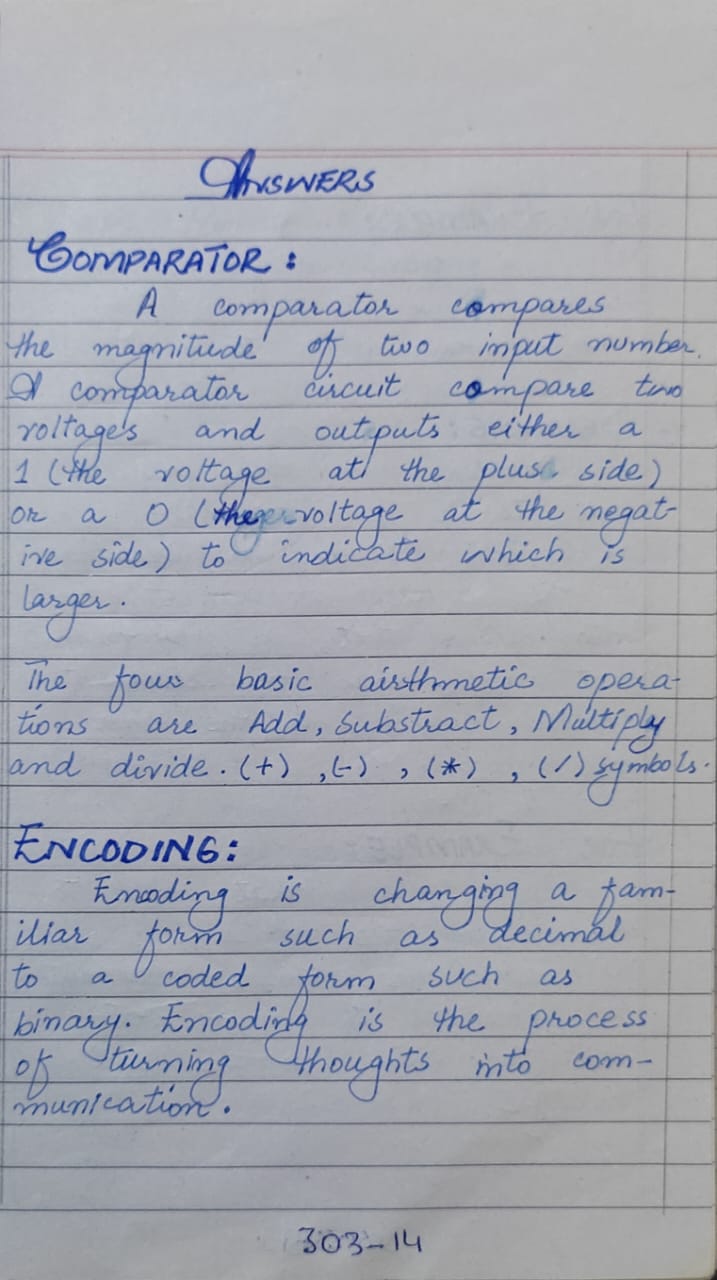 ANSWERS
COMPARATOR :
A comparator compares
the magnitude of two input number.
A comparator circuit compare two
voltages and outputs either a
1 (the voltage at the plus side)
or a 0 (the voltage at the negat-
ive side) to indicate which is
larger.
The four basic airthmetic opera-
tions are Add, Substract, Multiply
and divide. (+) , (-) , (*) , (/) symbols.
ENCODING:
Encoding is changing a fam-
iliar form such as decimal
to a coded form such as
binary. Encoding is the process
of turning thoughts into com-
munication.
303-14